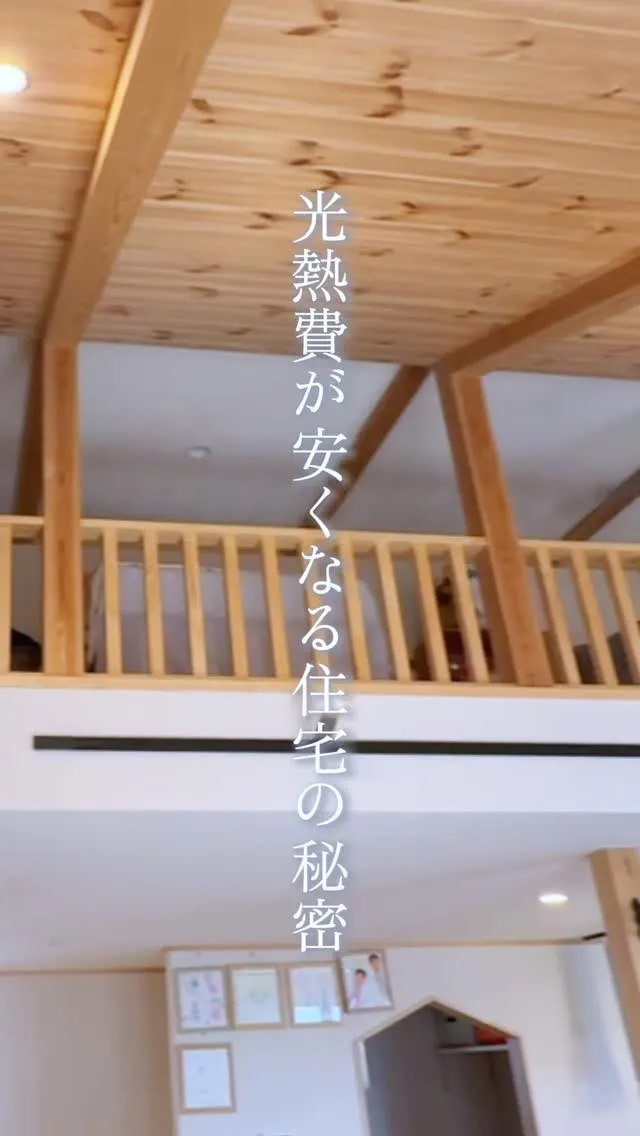 光熱費が安くなる住宅の秘密